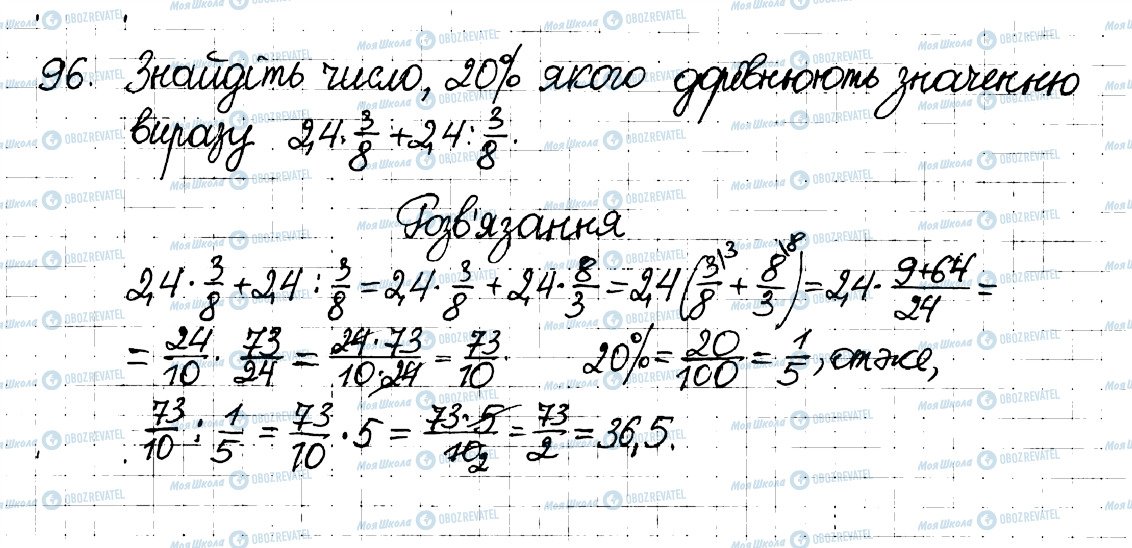 96. Знайдіть число, 20% якого дорівнюють значенню
виразу 2,4 · 3/8 + 2,4 : 3/8.
Розв'язання
2,4 · 3/8 + 2,4 : 3/8 = 2,4 · 3/8 + 2,4 · 8/3 = 2,4 (3/8 \3 + 8/3 \8) = 2,4 · (9+64)/24 =
= 24/10 · 73/24 = (24 · 73)/(10 · 24) = 73/10. 20% = 20/100 = 1/5, отже,
73/10 : 1/5 = 73/10 · 5 = (73 · 5)/10 2 = 73/2 = 36,5.
МояШкола OBOZREVATEL